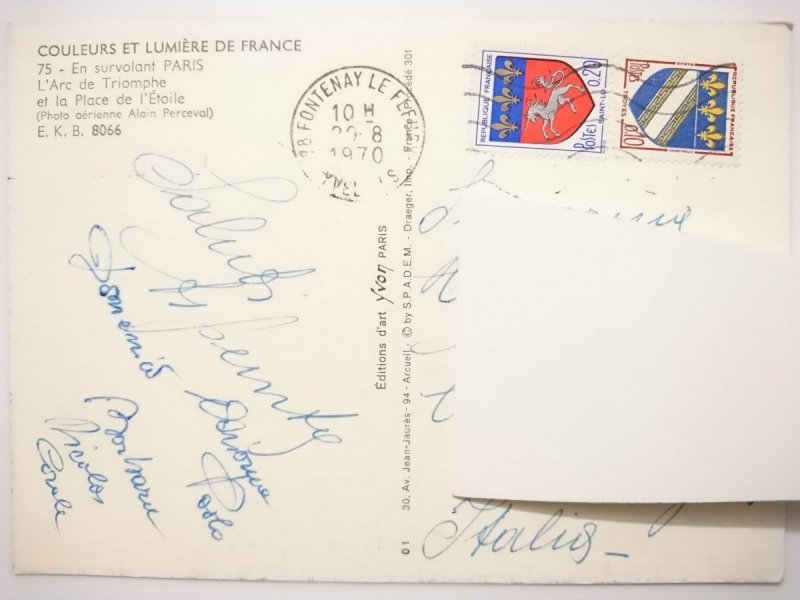 COULEURS ET LUMIÈRE DE FRANCE
75 - En survolant PARIS
L'Arc de Triomphe
et la Place de l'Étoile
(Photo aérienne Alain Perceval)
E. K. B. 8066
78 FONTENAY LE
10 H
1970
REPUBLIQUE FRANÇAISE
0,20
POSTES
SAINT-LO
POSTES
TROYES
0,10
REPUBLIQUE FRANÇAISE
Saluti
Domenico
Paolo
Barbara
Nicolas
Carole
Éditions d'art yvon PARIS
30, Av. Jean-Jaurès - 94 - Arcueil - © by S.P.A.D.E.M. - Draeger, Imp. - France (Procédé 301
01
Italia